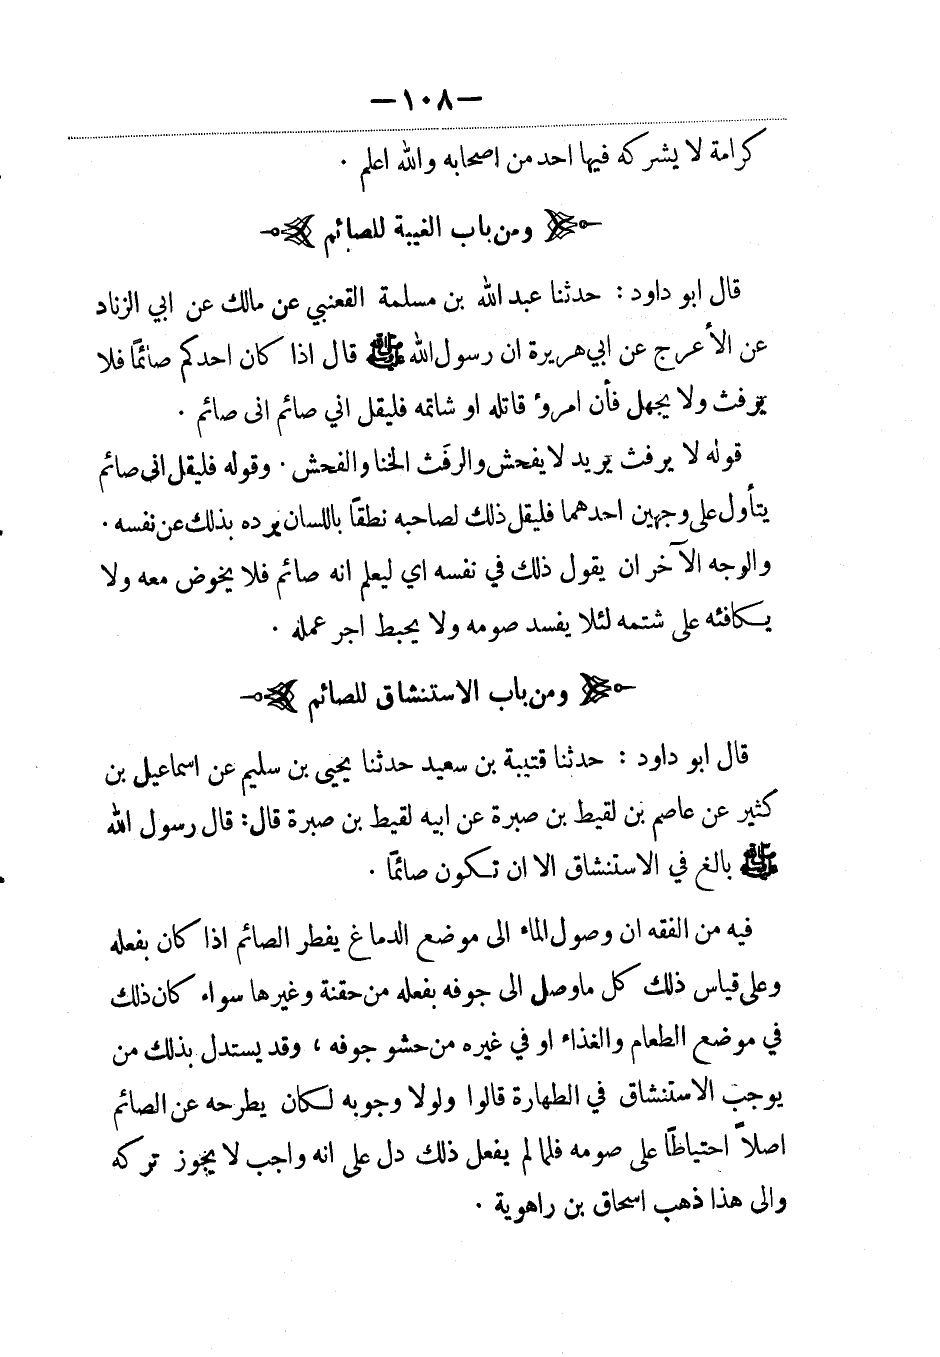 —١٠٨—
كرامة لا يشركه فيها احد من اصحابه والله اعلم ٠
ومن باب الغيبة للصائم
قال ابو داود : حدثنا عبد الله بن مسلمة القعنبي عن مالك عن ابي الزناد
عن الأعرج عن ابي هريرة ان رسول الله ﷺ قال اذا كان احدكم صائمًا فلا
يرفث ولا يجهل فأن امروء قاتله او شاتمه فليقل اني صائم انى صائم ٠
قوله لا يرفث يريد لا يفحش والرفَث الخنا والفحش ٠ وقوله فليقل انى صائم
يتأول على وجهين احدهما فليقل ذلك لصاحبه نطقًا باللسان يرده بذلك عن نفسه ٠
والوجه الآخر ان يقول ذلك في نفسه اي ليعلم انه صائم فلا يخوض معه ولا
يكافئه على شتمه لئلا يفسد صومه ولا يحبط اجر عمله ٠
ومن باب الاستنشاق للصائم
قال ابو داود : حدثنا قتيبة بن سعيد حدثنا يحيى بن سليم عن اسماعيل بن
كثير عن عاصم بن لقيط بن صبرة عن ابيه لقيط بن صبرة قال: قال رسول الله
ﷺ بالغ في الاستنشاق الا ان تكون صائمًا ٠
فيه من الفقه ان وصول الماء الى موضع الدماغ يفطر الصائم اذا كان بفعله
وعلى قياس ذلك كل ماوصل الى جوفه بفعله من حقنة وغيرها سواء كان ذلك
في موضع الطعام والغذاء او في غيره من حشو جوفه ، وقد يستدل بذلك من
يوجب الاستنشاق في الطهارة قالوا ولولا وجوبه لكان يطرحه عن الصائم
اصلاً احتياطًا على صومه فلما لم يفعل ذلك دل على انه واجب لا يجوز تركه
والى هذا ذهب اسحاق بن راهوية ٠